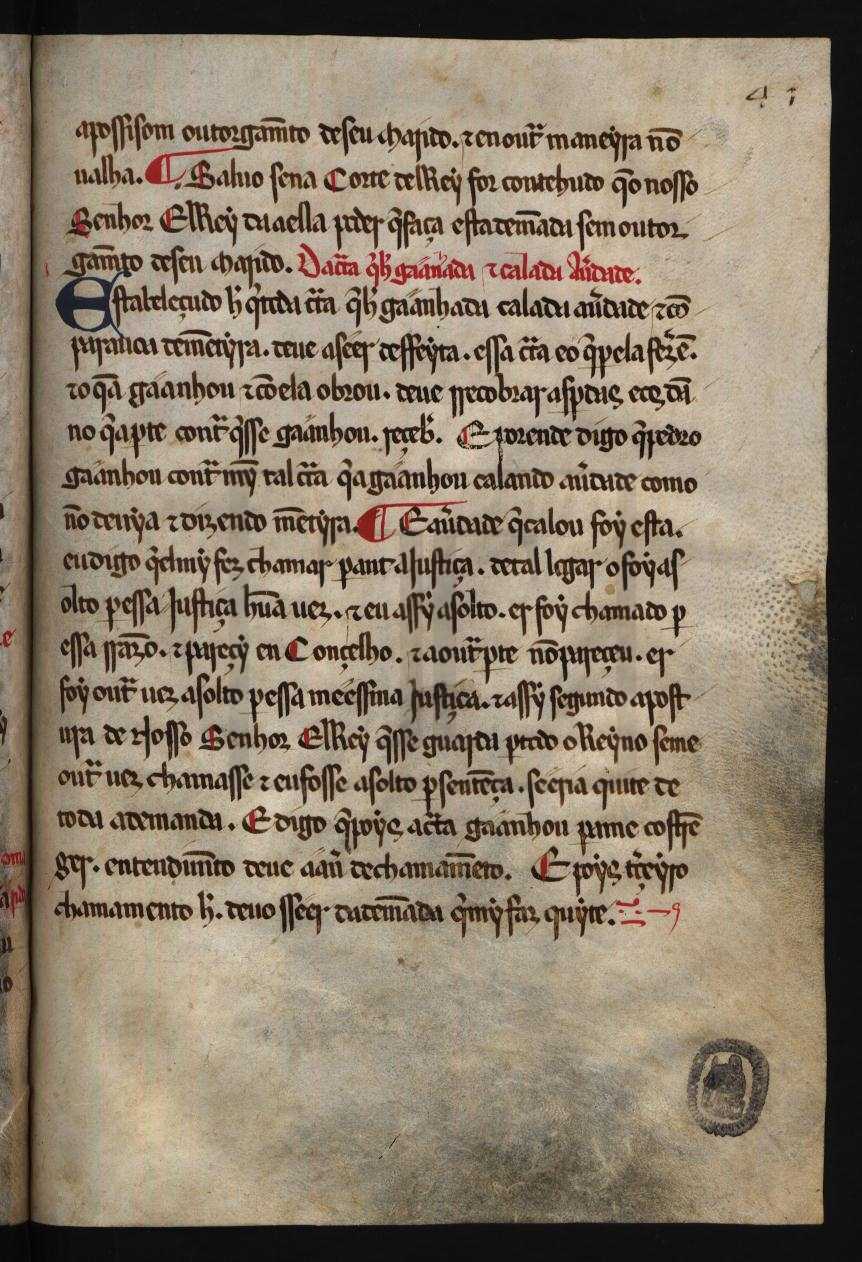 41
apossisom outorgam̃to de seu marido. ⁊ en out̃ maneyra nõ
ualha. ¶ Saluo se na Corte del Rey for contehudo q̃ o nosso
Senhor El Rey da a ella poder q̃ faça esta demãda sem outor
gam̃to de seu marido. Da c̃ta q̃ h̃ gaanhada ⁊ calada Au̇dade.
Estabeleçudo h̃ q̃ toda c̃ta q̃ h̃ gaanhada calada au̇dade ⁊ cõ
parauoa de mẽtyra. deue a seer deffeyta. essa c̃ta e o q̃ ꝑ ela fezẽ.
⁊ o q̃ a gaanhou ⁊ cõ ela obrou. deue rrecobrar as ꝑdas e os dã
nos q̃ a ꝑte cont̃ q̃ sse gaanhou. reçeb̃. E porende digo q̃ pedro
gaanhou cont̃ my tal c̃ta q̃ a gaanhou calando au̇dade como
nõ deuya ⁊ dizendo mẽtyra. ¶ E a u̇dade q̃ calou foy esta.
eu digo q̃ el my fez chamar ꝑant a Justiça. de tal logar ⁊ foy as
olto ꝑ essa Justiça hũa uez. ⁊ eu assy asolto. er foy chamado ꝑ
essa rrazõ. ⁊ pareçy en Conçelho. ⁊ a out̃ ꝑte nõ pareçeu. er
foy out̃ uez asolto ꝑ essa meessma Justiça. ⁊ assy segundo a post
ura de Nosso Senhor El Rey q̃ sse guarda ꝑ todo o Reyno se me
out̃ uez chamasse ⁊ eu fosse asolto ꝑ sentẽça. seeria quite de
toda a demanda. E digo q̃ poys a c̃ta gaanhou ꝑa me costrẽ
ger. entendim̃to deue a au̇ de chamam̃eto. E poys t̃çeyro
chamamento h̃. deuo sseer da demãda q̃ my faz quyte.